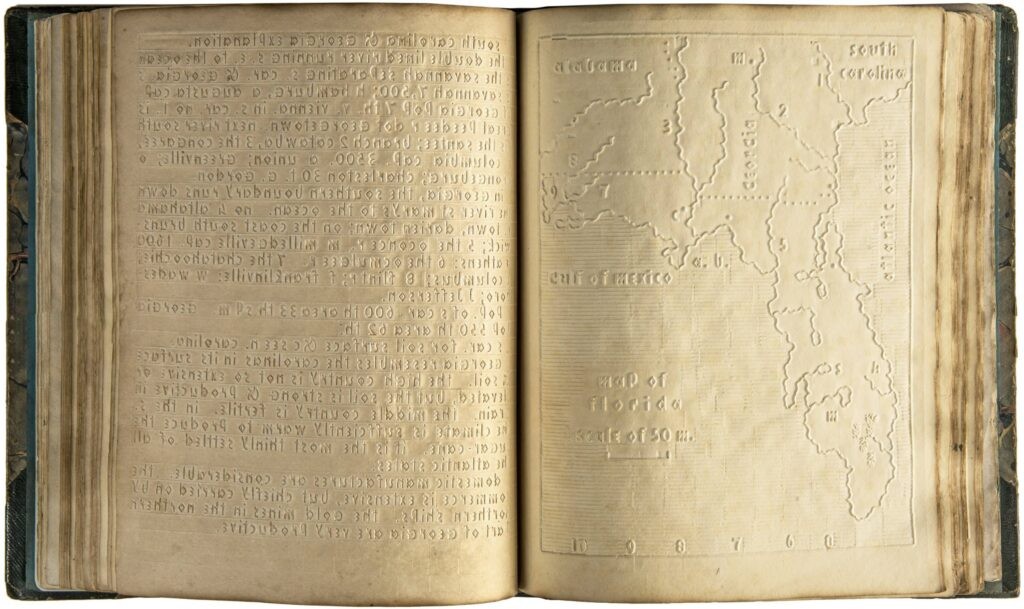 south carolina & georgia explanation.
the double lined river running s. e. to the ocean
the savannah separating s. car. & georgia s
savannah 7,500; h hamburg, a augusta cap
georgia pop 7 th. v. vienna. in s. car. no 1. is
great peedee r dot georgetown. next river south
is the santee; branch 2 catawba, 3 the congaree.
columbia cap. 3500. a union; greenville; o
orangeburg; charleston 30 t. g. gordon
in georgia, the southern boundary runs down
the river st marys to the ocean. no 4 altahama
town, darien town; on the coast south bruns
wick; 5 the oconee r. m milledgeville cap. 1600
athens; 6 the ocmulgee r. 7 the chatahoochie
columbus; 8 flint r; f franklinville; w wades
boro; J Jefferson.
pop. of s car. 600 th area 33 th sq m georgia
pop 550 th area 62 th;
s car. for soil surface &c see n. carolina.
georgia resembles the carolinas in its surface
& soil. the high country is not so extensive or
elevated, but the soil is strong & productive in
grain. the middle country is fertile. in the s.
the climate is sufficiently warm to produce the
sugar-cane. it is the most thinly settled of all
the atlantic states.
domestic manufactures are considerable. the
commerce is extensive, but chiefly carried on by
northern ships. the gold mines in the northern
part of georgia are very productive
alabama
m.
south
carolina
1
2
3
georgia
8
7
5
atlantic ocean
a. b.
gulf of mexico
map of
florida
s
h
m
scale of 50 m.
10 9 8 7 6 0